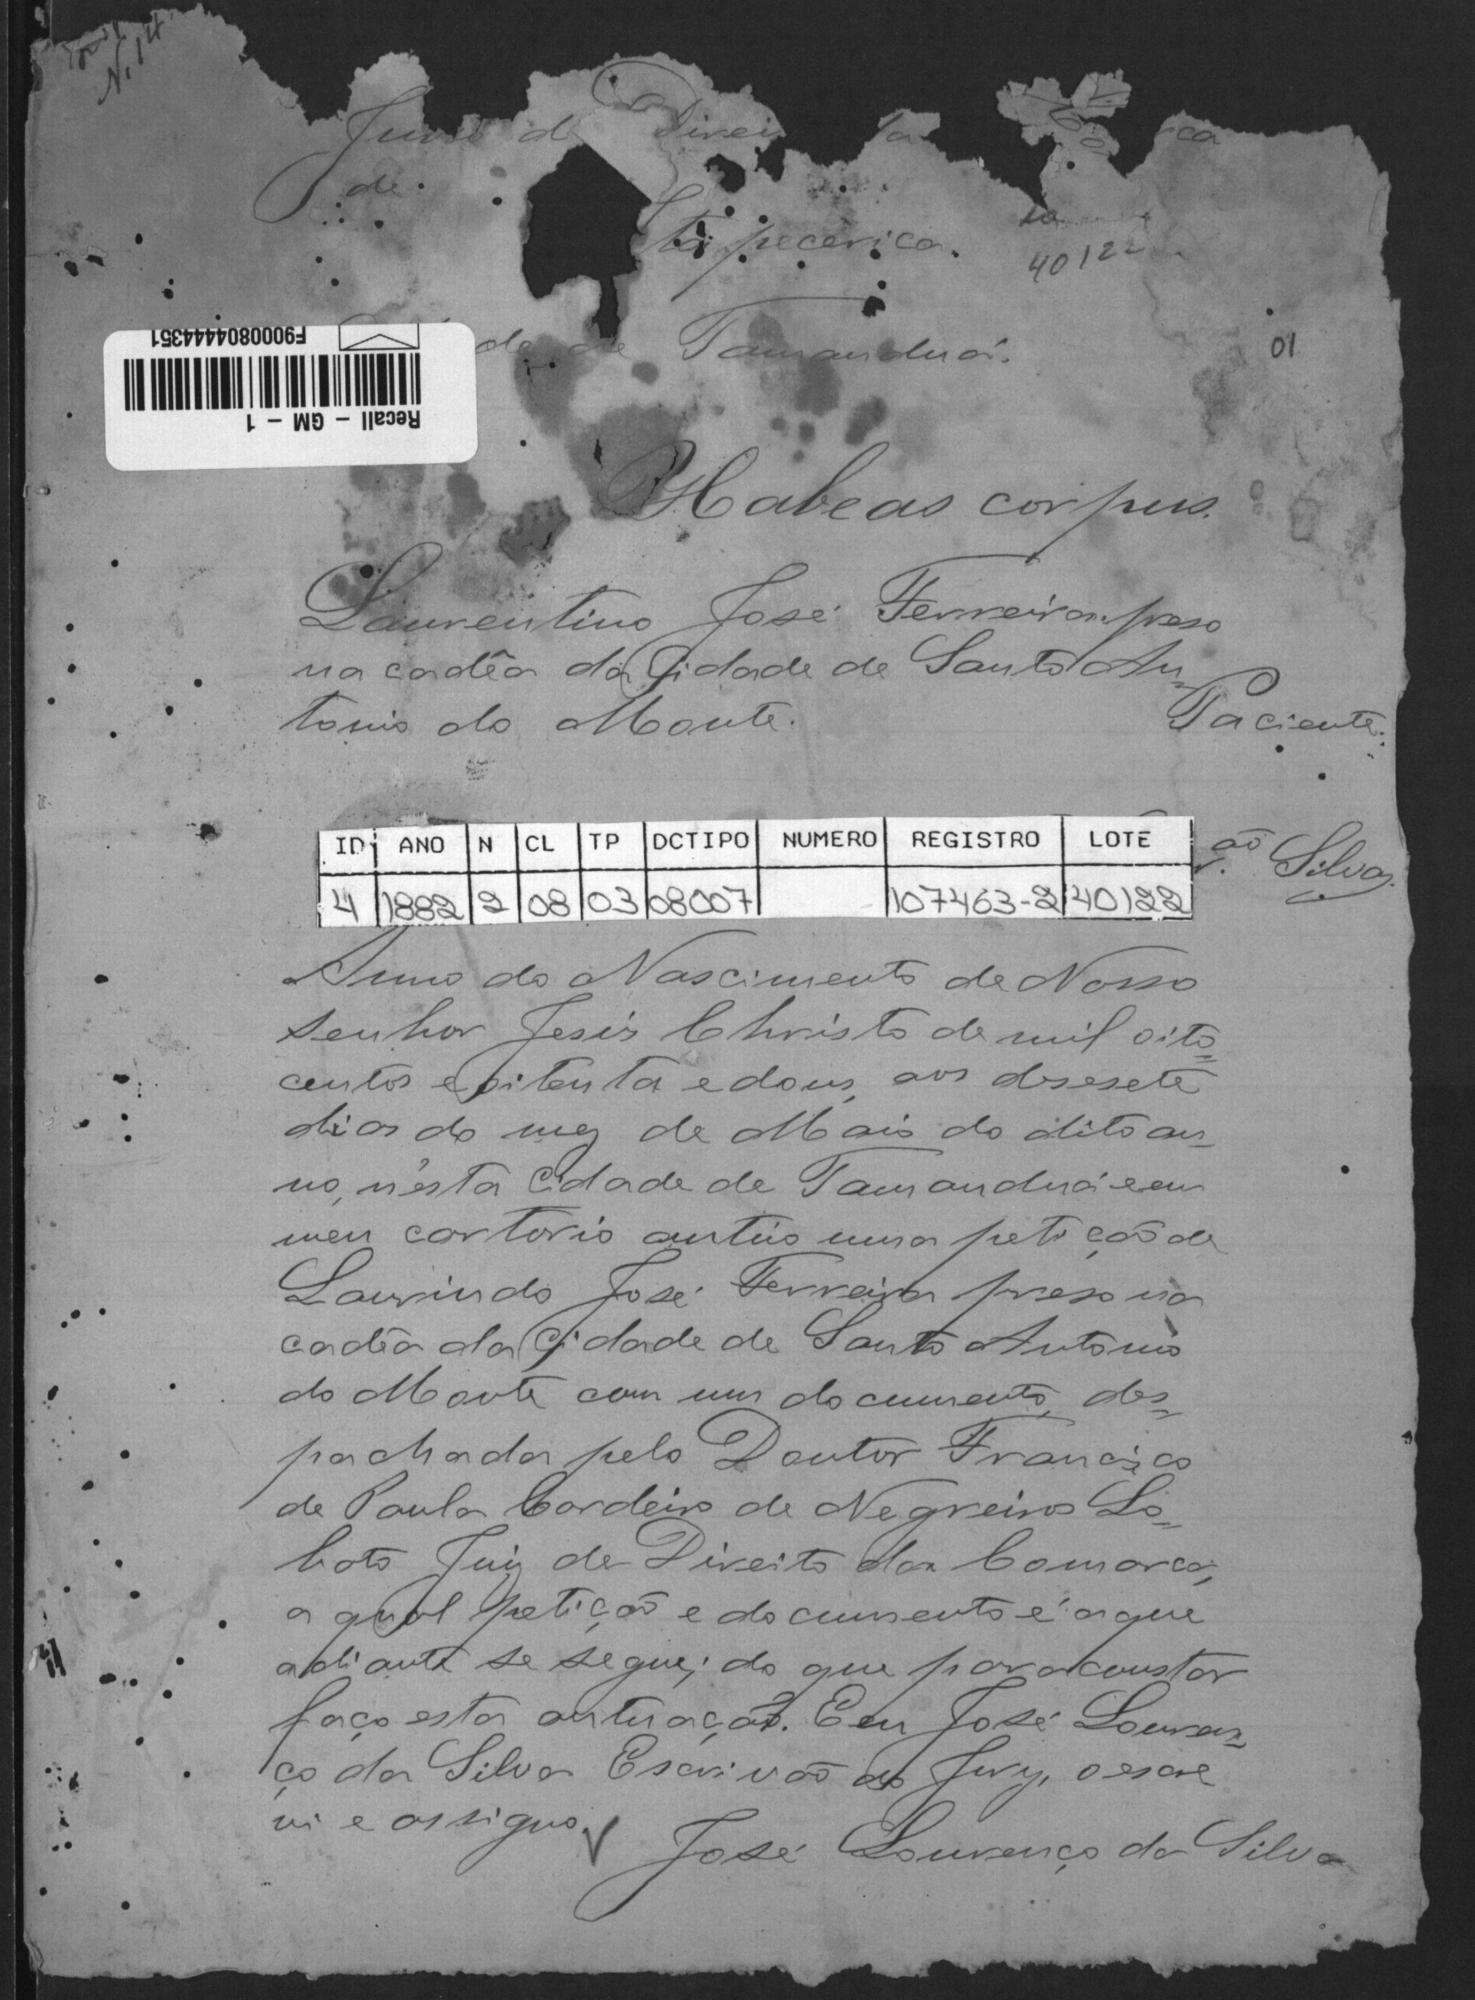 N. 14
Juiso de Direi da ca
de
Itapecerica.
40122
F9000804444351
Recall - GM - 1
de de Tamanduá.
01
Habeas corpus.
Laurentino José Ferreira, preso
na cadêa da Cidade de Santo An=
tonio do Monte. Paciente.
ão Silva
ID ANO N CL TP DCTIPO NUMERO REGISTRO LOTE
4 1882 2 08 03 08007 107463-2 40122
Anno do Nascimento de Nosso
Senhor Jesus Christo de mil oito=
centos e oitenta e dous, aos desesete
dias do mez de Maio do dito an=
no, n'esta Cidade de Tamanduá e em
meu cartorio autúo uma petição de
Laurindo José Ferreira preso na
cadêa da Cidade de Santo Antonio
do Monte com um documento, des=
pachada pelo Doutor Francisco
de Paula Cordeiro de Negreiros Lo=
bato Juiz de Direito da Comarca,
a qual petição e documento é a que
adiante se segue; do que para constar
faço esta autuação. Eu José Louren=
ço da Silva Escrivão do Jury, o escre
vi e assigno.
José Lourenço da Silva